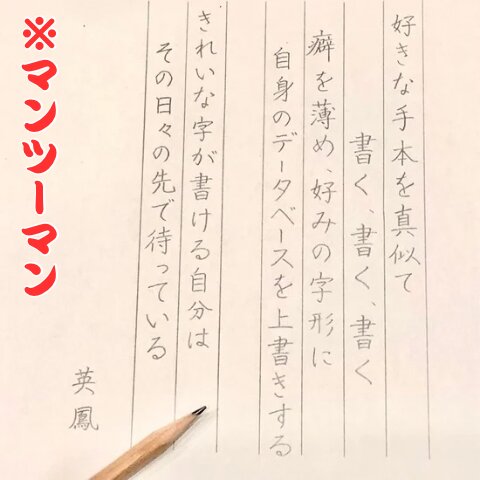 好きな手本を真似て
書く、書く、書く
癖を薄め、好みの字形に
自身のデータベースを上書きする
きれいな字が書ける自分は
その日々の先で待っている
英鳳
※マンツーマン